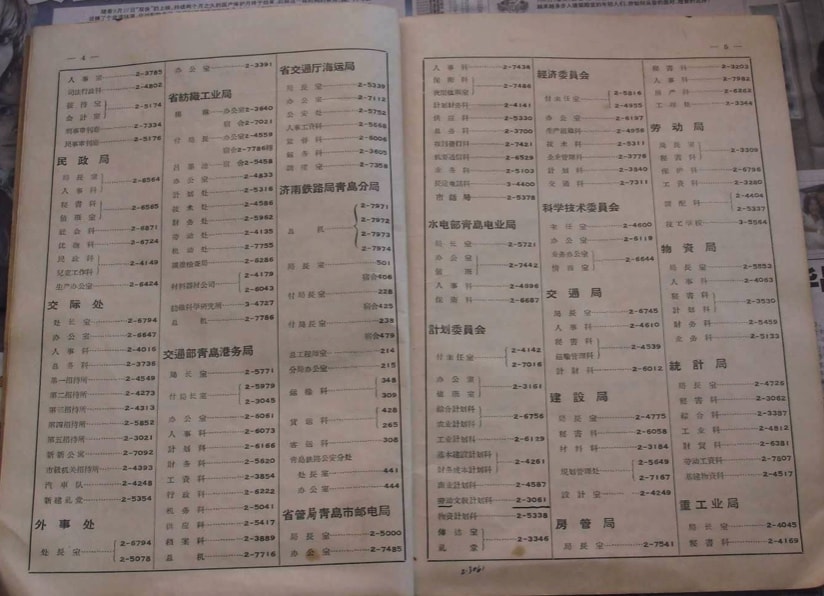 — 4 —
人事室 2-3785
司法行政科 2-4802
接待室
会計室 2-5174
刑事审判庭 2-7334
民事审判庭 2-5176
民政局
局长室
人事科 2-6564
秘書科
值班室 2-6565
社会科 2-6871
优抚科 2-6724
民政科
兒童工作科 2-4149
生产办公室 2-6424
交际处
处长室 2-6794
办公室 2-6647
人事科 2-4016
总务科 2-3736
第一招待所 2-4549
第二招待所 2-4273
第三招待所 2-4313
第四招待所 2-5852
第五招待所 2-3021
新新公寓 2-7092
市級机关招待所 2-4393
汽車队 2-4248
新建礼堂 2-5354
外事处
处長室 2-6794
2-5078
办公室 2-3391
省紡織工业局
办公室 2-3640
宿会 2-7021
付局长 办公室 2-4559
宿会 2-7786轉
宿会 2-5458
办公室 2-4833
計划处 2-5316
技术处 2-4586
財务处 2-5962
劳动处 2-4135
机动处 2-7755
2-6286
材料器材公司 2-4179
2-6043
紡織科学研究所 3-4727
总机 2-7786
交通部青島港务局
局长室 2-5771
付局长室 2-5979
2-3045
办公室 2-6061
人事科 2-6073
計划科 2-6166
財务科 2-5820
工資科 2-3854
行政科 2-6222
机务科 2-5041
供应科 2-5417
档案科 2-3889
总机 2-7716
省交通厅海运局
局長室 2-5339
办公室 2-7112
公安处 2-5752
人事工資科 2-5668
監督科 2-6006
船务科 2-3605
調度室 2-7358
济南鉄路局青島分局
总机 2-7971
2-7972
2-7973
2-7974
局長室 501
宿会 606
付局長室 228
宿会 425
付局長室 238
宿会 479
总工程师室 214
分局办公室 215
348
309
貨运科 428
265
客运科 308
青島鉄路公安分处
处長室 441
办公室 444
省管局青島市邮电局
局長室 2-5000
办公室 2-7485
— 5 —
人事科 2-7436
保衛科 2-7486
計划財务科 2-4161
供应科 2-5330
总务科 2-3700
市內發行科 2-7421
机要通信科 2-6529
业务科 2-5103
長途電話科 3-4400
市話局 2-5378
水电部青島电业局
局長室 2-5721
办公室
2-7442
人事科 2-4896
保衛科 2-6687
計划委員会
付主任室 2-4142
2-7016
办公室
值班室 2-3161
綜合計划科
农业計划科 2-6756
工业計划科 2-6129
基本建設計划科
財务成本計划科 2-4261
商业計划科 2-4587
劳动文教計划科 2-3061
物資計划科 2-5338
傳达室
礼堂 2-3346
經济委員会
付主任室 2-5316
2-4955
办公室 2-6197
生产組織科 2-4958
技术科 2-5311
企业管理科 2-3778
計划科 2-3840
交通科 2-7311
科学技术委員会
主任室 2-4600
办公室 2-6118
业务办公室
情报室 2-6644
交通局
局長室 2-6745
人事科 2-4610
秘書科
运輸管理科 2-4539
計財科 2-6012
建設局
局長室 2-4775
秘書室 2-6058
材料科 2-3184
規划管理处 2-5649
2-7187
設計室 2-4249
房管局
局長室 2-7541
秘書科 2-3203
人事科 2-7982
房产科 2-6262
工程处 2-3344
劳动局
局長室
秘書科 2-3209
保护科 2-6796
工資科 2-3280
調配科 2-4404
2-5337
技工学校 3-5564
物資局
局長室 2-5853
人事科 2-4063
秘書科
計划科 2-3530
財务科 2-5459
业务科 2-5133
統計局
局長室 2-4726
秘書科 2-3062
綜合科 2-3387
工业科 2-4812
財貿科 2-6381
劳动工資科 2-7807
基建物資科 2-4517
重工业局
局長室 2-4045
秘書科 2-4169
2-3061